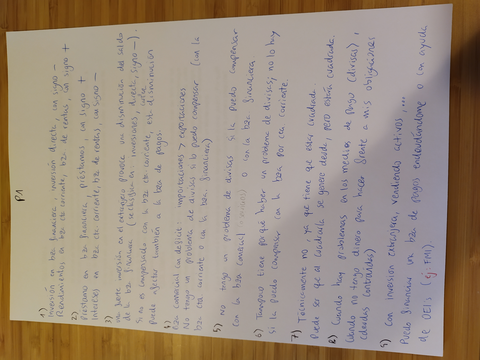 P1
1) Inversión en bza financiera, inversión directa, con signo -
Rendimientos en bza cta corriente, bza de rentas, con signo +
2) Préstamo en bza financiera, préstamos con signo +
Intereses en bza cta corriente, bza de rentas, con signo -
3) Una fuerte inversión en el extranjero provoca una disminución del saldo
de la bza financiera (se refleja en inversiones, directa, signo -).
Si no es compensada con la bza cta corriente, esta disminución
puede afectar también a la bza de pagos.
4) Bza comercial con déficit: importaciones > exportaciones
No tengo un problema de divisas si lo puedo compensar (con la
bza cta corriente o con la bza financiera)
5) No tengo un problema de divisas si la puedo compensar
con la bza comercial o con la bza financiera
6) Tampoco tiene por qué haber un problema de divisas; no lo hay
si la puedo compensar con la bza por cta corriente
7) Técnicamente no, ya que tiene que estar cuadrada.
Puede ser que al cuadrarla se genere deuda, pero estará cuadrada.
8) Cuando hay problemas en los medios de pago (divisas),
cuando no tengo dinero para hacer frente a mis obligaciones
(deudas contraídas)
9) Con inversión extranjera, vendiendo activos ...
Puedo financiar una bza de pagos endeudándome o con ayuda
de OEIs (ej FMI)